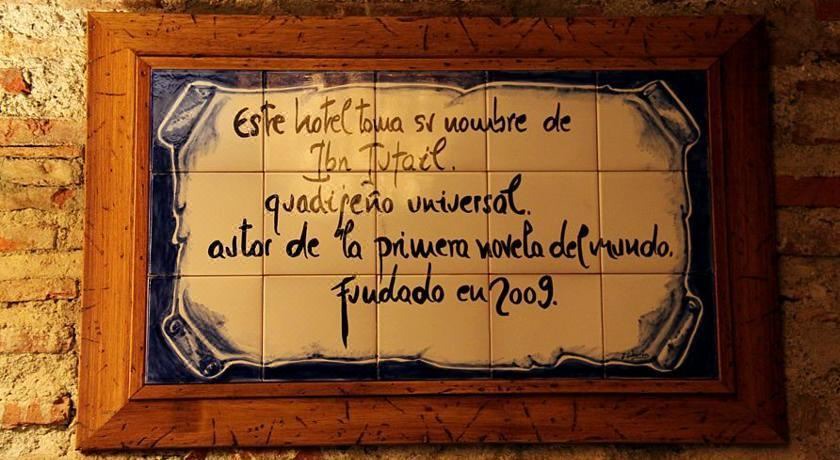 Este hotel toma su nombre de
Ibn Tufail.
guadijeño universal.
autor de la primera novela del mundo.
Fundado en 2009.